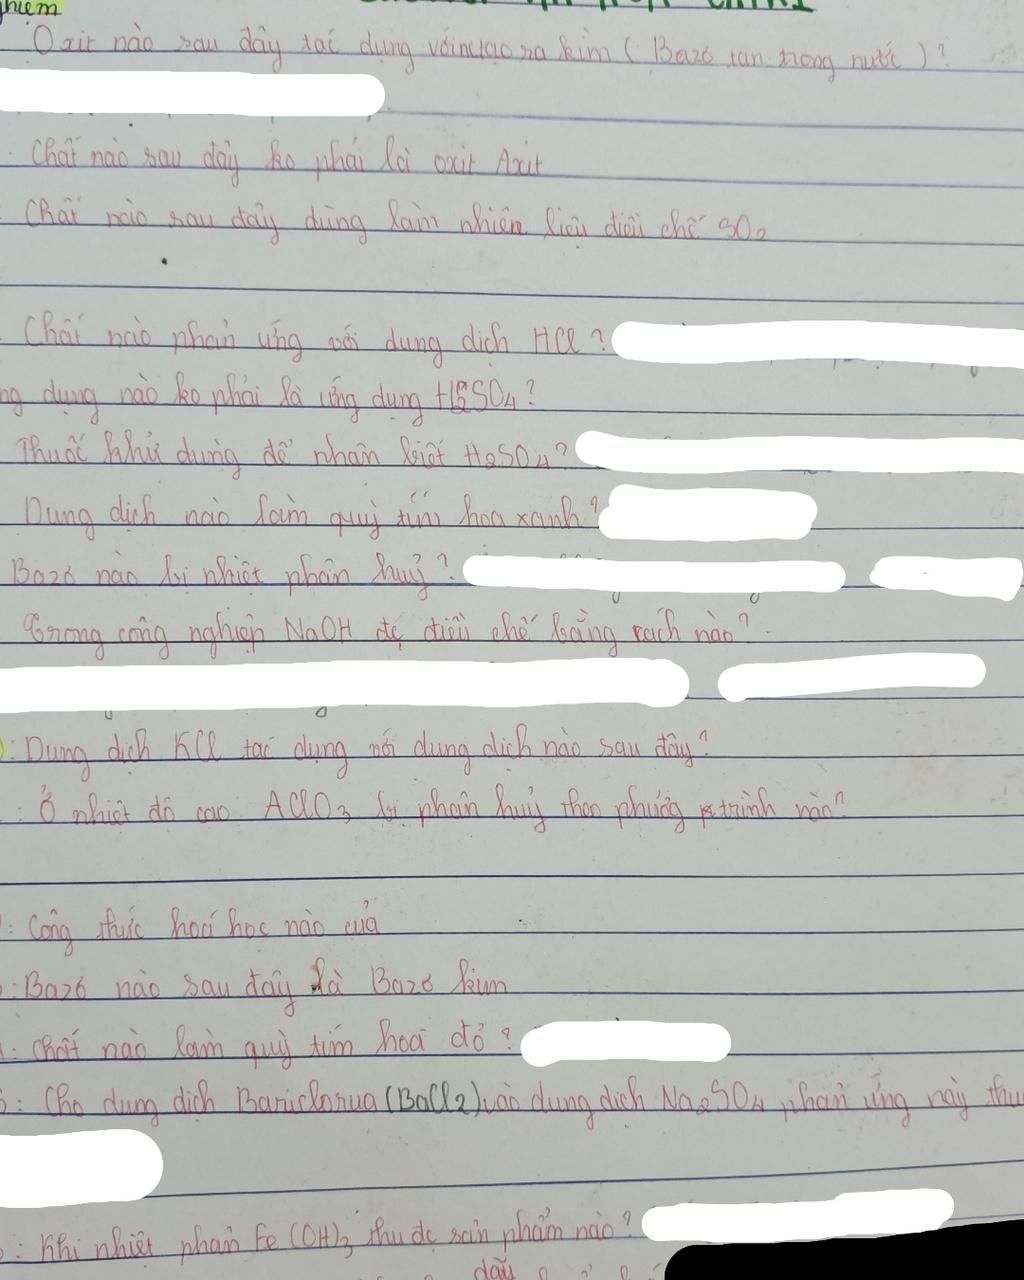 Oxit nào sau đây tác dụng với nc tạo ra kim ( Bazơ tan trong nước ) ?
Chất nào sau đây ko phải là oxit Axit
Chất nào sau đây dùng làm nhiên liệu điều chế SO2
Chất nào phản ứng với dung dịch HCl ?
ng dụng nào ko phải là ứng dụng H2SO4 ?
Thuốc thử dùng để nhận biết H2SO4 ?
Dung dịch nào làm quỳ tím hoá xanh ?
Bazơ nào bị nhiệt phân huỷ ?
Trong công nghiệp NaOH đc điều chế bằng cách nào ?
: Dung dịch KCl tác dụng với dung dịch nào sau đây ?
: Ở nhiệt độ cao AClO3 bị phân huỷ theo phương trình nào ?
: Công thức hoá học nào của
: Bazơ nào sau đây là Bazơ kìm
: Chất nào làm quỳ tím hoá đỏ ?
: Cho dung dịch Bariclorua (BaCl2) vào dung dịch Na2SO4 phản ứng này thu
: Khi nhiệt phân Fe(OH)3 thu đc sản phẩm nào ?
dãy